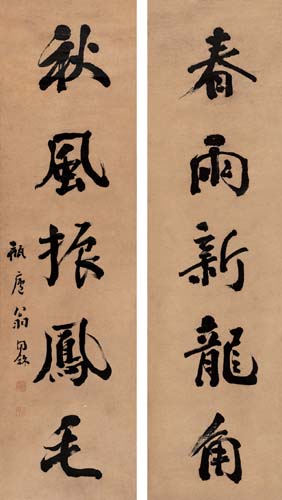 春雨新龍角
秋風振鳳毛
瓶廬翁同龢